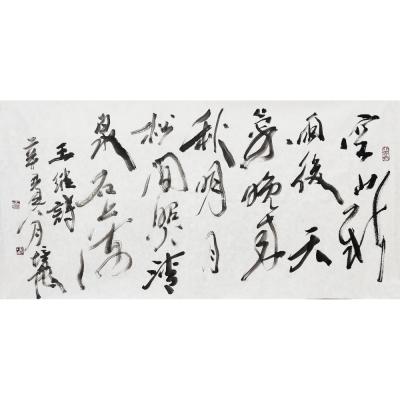 空山新
雨後天
氣晚来
秋明月
松間照清
泉石上流
王維詩
八月